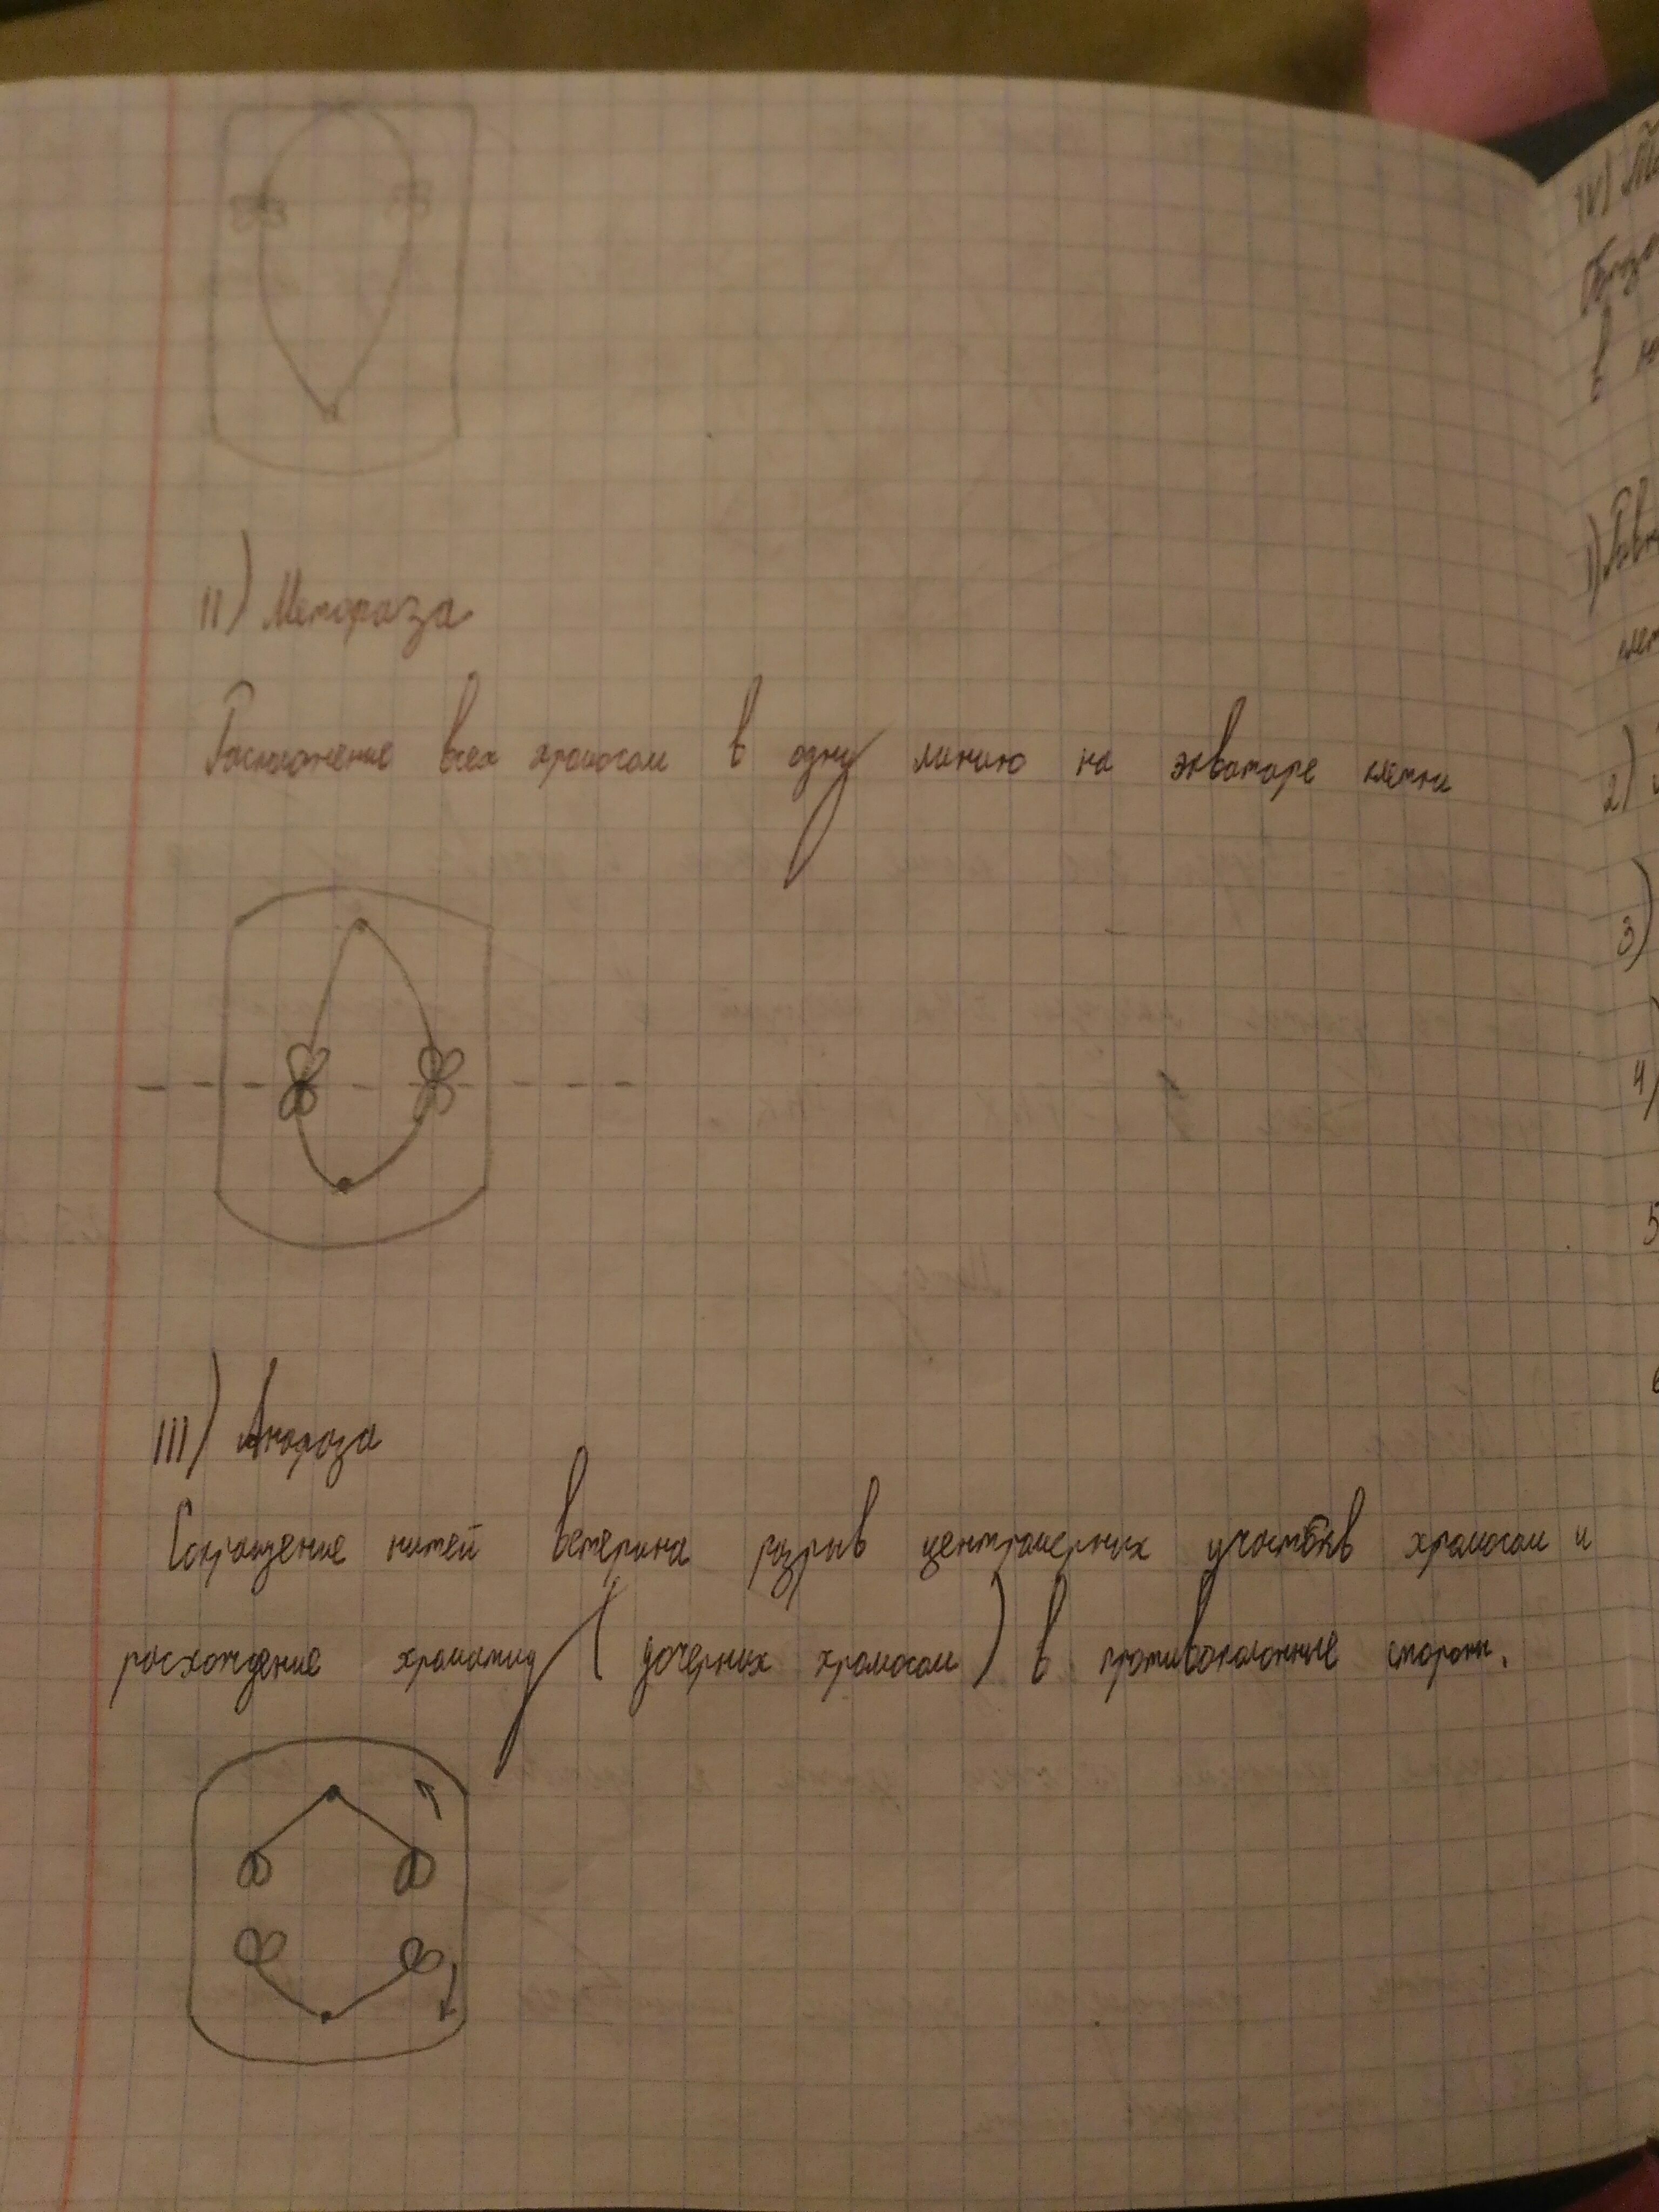 II) Метофаза
Расположение всех хромосом в одну линию на экваторе клетки
III) Анафаза
Сокращение нитей ветерина разрыв центромерных участков хромосом и
расхождение хроматид (дочерних хромосом) в противоположные стороны.
IV)
в
1)
2)
3)
4)
5